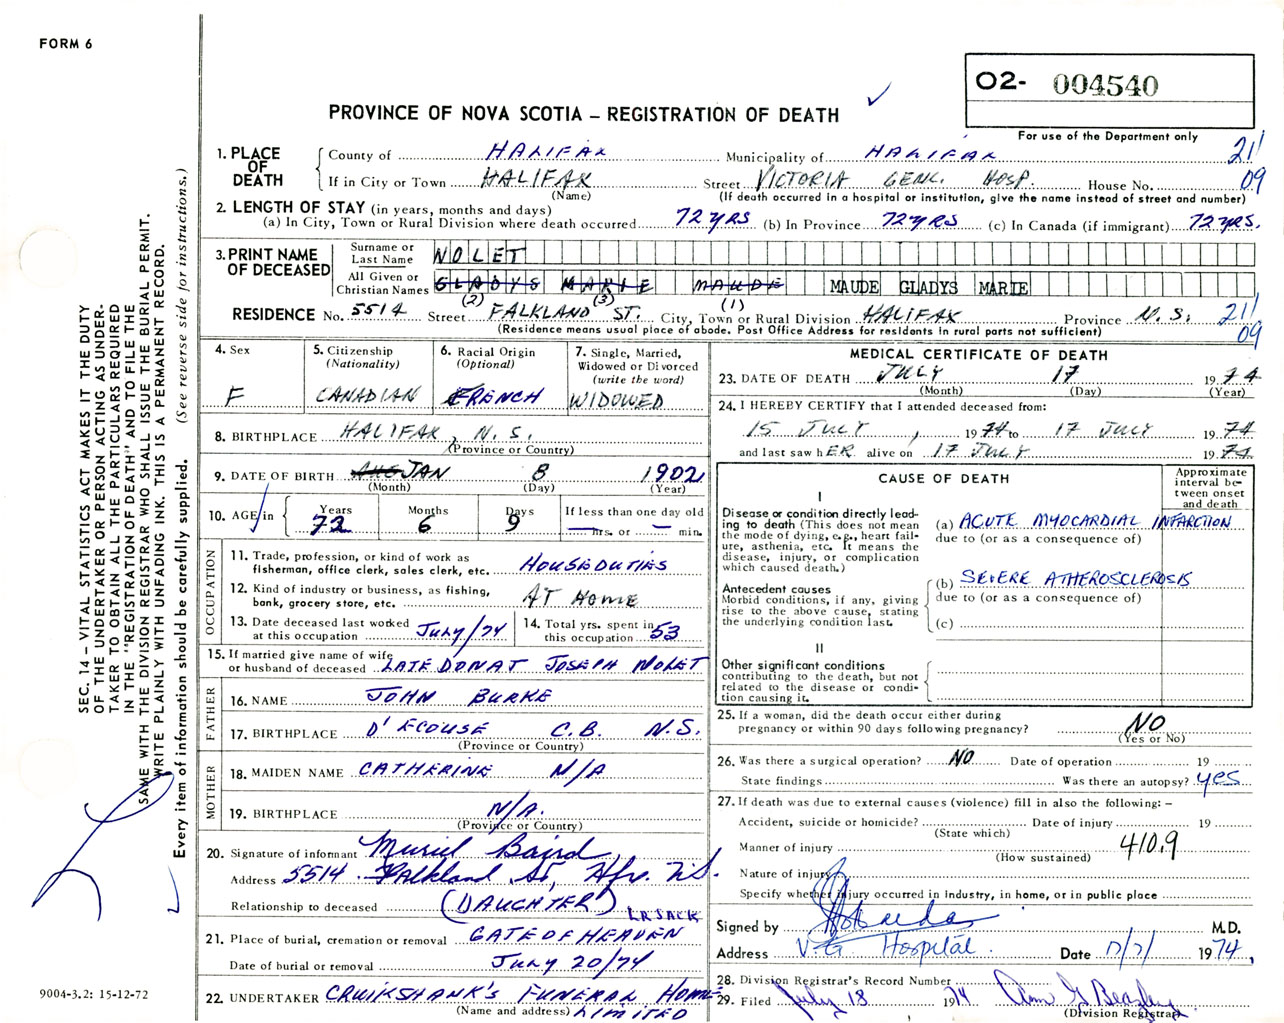 FORM 6
O2- 004540
PROVINCE OF NOVA SCOTIA – REGISTRATION OF DEATH
For use of the Department only
1. PLACE OF DEATH
County of HALIFAX Municipality of HALIFAX 21
If in City or Town HALIFAX Street VICTORIA GENL. HOSP. House No. 09
(Name) (If death occurred in a hospital or institution, give the name instead of street and number)
2. LENGTH OF STAY (in years, months and days)
(a) In City, Town or Rural Division where death occurred 72 YRS (b) In Province 72 YRS (c) In Canada (if immigrant) 72 YRS.
3. PRINT NAME OF DECEASED
Surname or Last Name NOLET
All Given or Christian Names GLADYS MARIE MAUDE MAUDE GLADYS MARIE
(2) (3) (1)
RESIDENCE No. 5514 Street FALKLAND ST. City, Town or Rural Division HALIFAX Province N.S. 21
(Residence means usual place of abode. Post Office Address for residents in rural parts not sufficient) 09
4. Sex
F
5. Citizenship
(Nationality)
CANADIAN
6. Racial Origin
(Optional)
FRENCH
7. Single, Married,
Widowed or Divorced
(write the word)
WIDOWED
8. BIRTHPLACE HALIFAX, N.S.
(Province or Country)
9. DATE OF BIRTH AUG JAN 8 1902
(Month) (Day) (Year)
10. AGE in Years Months Days If less than one day old
72 6 9 — hrs. or — min.
OCCUPATION
11. Trade, profession, or kind of work as
fisherman, office clerk, sales clerk, etc. HOUSEDUTIES
12. Kind of industry or business, as fishing,
bank, grocery store, etc. AT HOME
13. Date deceased last worked
at this occupation July/74
14. Total yrs. spent in
this occupation 53
15. If married give name of wife
or husband of deceased LATE DONAT JOSEPH NOLET
FATHER
16. NAME JOHN BURKE
17. BIRTHPLACE D'ECOUSE C.B. N.S.
(Province or Country)
MOTHER
18. MAIDEN NAME CATHERINE N/A
19. BIRTHPLACE N/A.
(Province or Country)
20. Signature of informant Muriel Baird
Address 5514 Falkland St, Hfx. N.S.
Relationship to deceased (DAUGHTER)
LR SACK
21. Place of burial, cremation or removal GATE OF HEAVEN
Date of burial or removal July 20/74
22. UNDERTAKER CRUIKSHANK'S FUNERAL HOME
(Name and address) LIMITED
MEDICAL CERTIFICATE OF DEATH
23. DATE OF DEATH JULY 17 1974
(Month) (Day) (Year)
24. I HEREBY CERTIFY that I attended deceased from:
15 JULY, 1974 to 17 JULY 1974
and last saw hER alive on 17 JULY 1974
CAUSE OF DEATH
Approximate
interval be-
tween onset
and death
I
Disease or condition directly lead-
ing to death (This does not mean
the mode of dying, e.g., heart fail-
ure, asthenia, etc. It means the
disease, injury, or complication
which caused death.)
(a) ACUTE MYOCARDIAL INFARCTION
due to (or as a consequence of)
Antecedent causes
Morbid conditions, if any, giving
rise to the above cause, stating
the underlying condition last.
(b) SEVERE ATHEROSCLEROSIS
due to (or as a consequence of)
(c)
II
Other significant conditions
contributing to the death, but not
related to the disease or condi-
tion causing it.
25. If a woman, did the death occur either during
pregnancy or within 90 days following pregnancy? NO
(Yes or No)
26. Was there a surgical operation? NO Date of operation 19
State findings Was there an autopsy? yes
27. If death was due to external causes (violence) fill in also the following: –
Accident, suicide or homicide? Date of injury 19
(State which)
Manner of injury 410.9
(How sustained)
Nature of injury
Specify whether injury occurred in industry, in home, or in public place
Signed by M.D.
Address V.G Hospital. Date 17/7/ 1974,
28. Division Registrar's Record Number
29. Filed July 18 1974 Ann G Beazley
(Division Registrar)
SEC. 14 – VITAL STATISTICS ACT MAKES IT THE DUTY
OF THE UNDERTAKER OR PERSON ACTING AS UNDER-
TAKER TO OBTAIN ALL THE PARTICULARS REQUIRED
IN THE "REGISTRATION OF DEATH" AND TO FILE THE
SAME WITH THE DIVISION REGISTRAR WHO SHALL ISSUE THE BURIAL PERMIT.
WRITE PLAINLY WITH UNFADING INK. THIS IS A PERMANENT RECORD.
Every item of information should be carefully supplied. (See reverse side for instructions.)
9004-3.2: 15-12-72